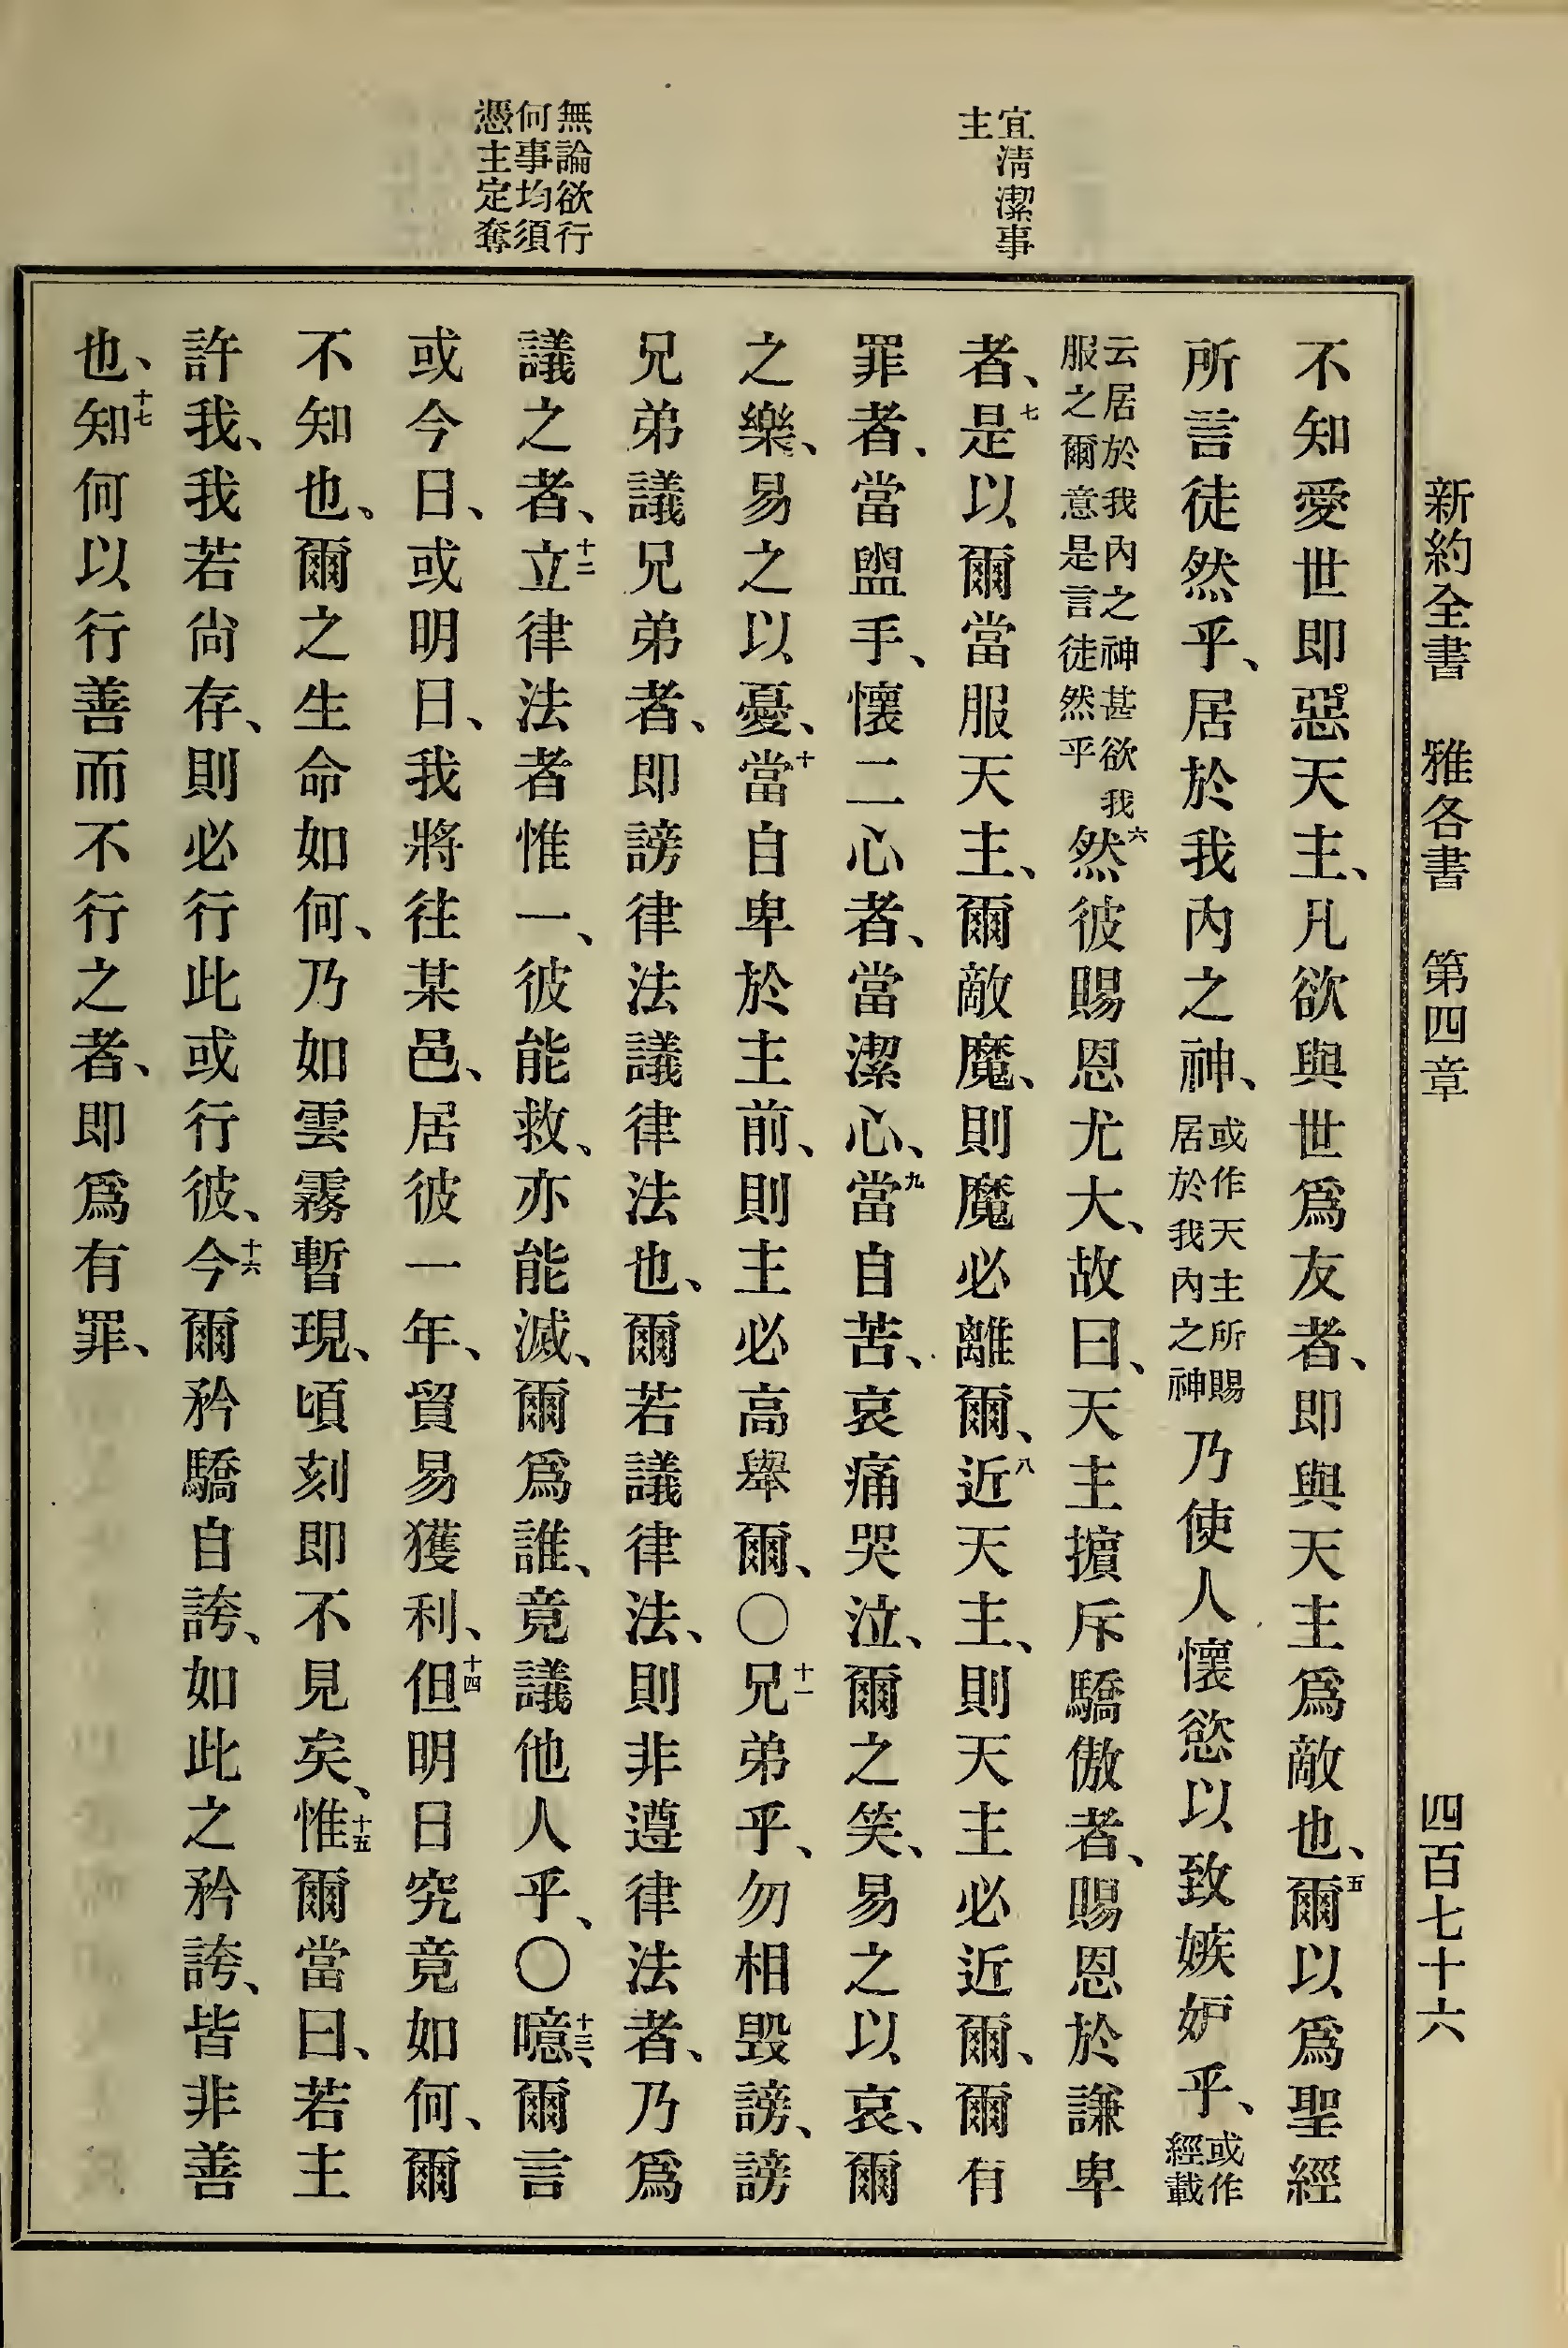 新約全書 雅各書 第四章 四百七十六
宜清潔事
主
無論欲行
何事均須
憑主定奪
不知愛世即惡天主、凡欲與世爲友者、即與天主爲敵也、五爾以爲聖經
所言徒然乎、居於我內之神、或作天主所賜居於我內之神乃使人懷慾以致嫉妒乎、或作經載
云居於我內之神甚欲我服之爾意是言徒然乎六然彼賜恩尤大、故曰、天主擯斥驕傲者、賜恩於謙卑
者、七是以爾當服天主、爾敵魔、則魔必離爾、八近天主、則天主必近爾、爾有
罪者、當盥手、懷二心者、當潔心、九當自苦、哀痛哭泣、爾之笑、易之以哀、爾
之樂、易之以憂、十當自卑於主前、則主必高舉爾、〇十一兄弟乎、勿相毀謗、謗
兄弟議兄弟者、即謗律法議律法也、爾若議律法、則非遵律法者、乃爲
議之者、十二立律法者惟一、彼能救、亦能滅、爾爲誰、竟議他人乎、〇十三噫、爾言
或今日、或明日、我將往某邑、居彼一年、貿易獲利、十四但明日究竟如何、爾
不知也、爾之生命如何、乃如雲霧暫現、頃刻即不見矣、十五惟爾當曰、若主
許我、我若尙存、則必行此或行彼、十六今爾矜驕自誇、如此之矜誇、皆非善
也、十七知何以行善而不行之者、即爲有罪、